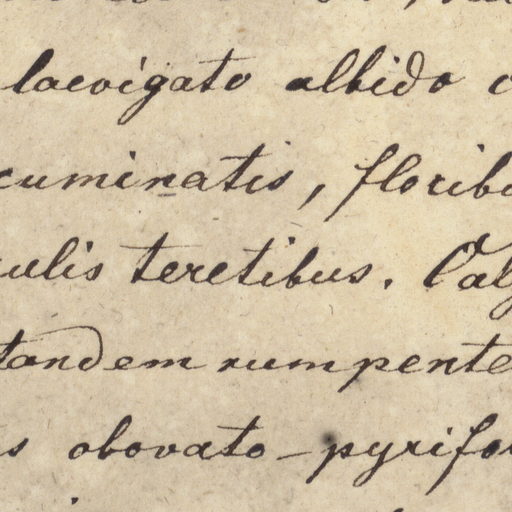 laevigato albido
cuminatis, floribu
culis teretibus. Caly
tandem rumpente
s obovato-pyrifor